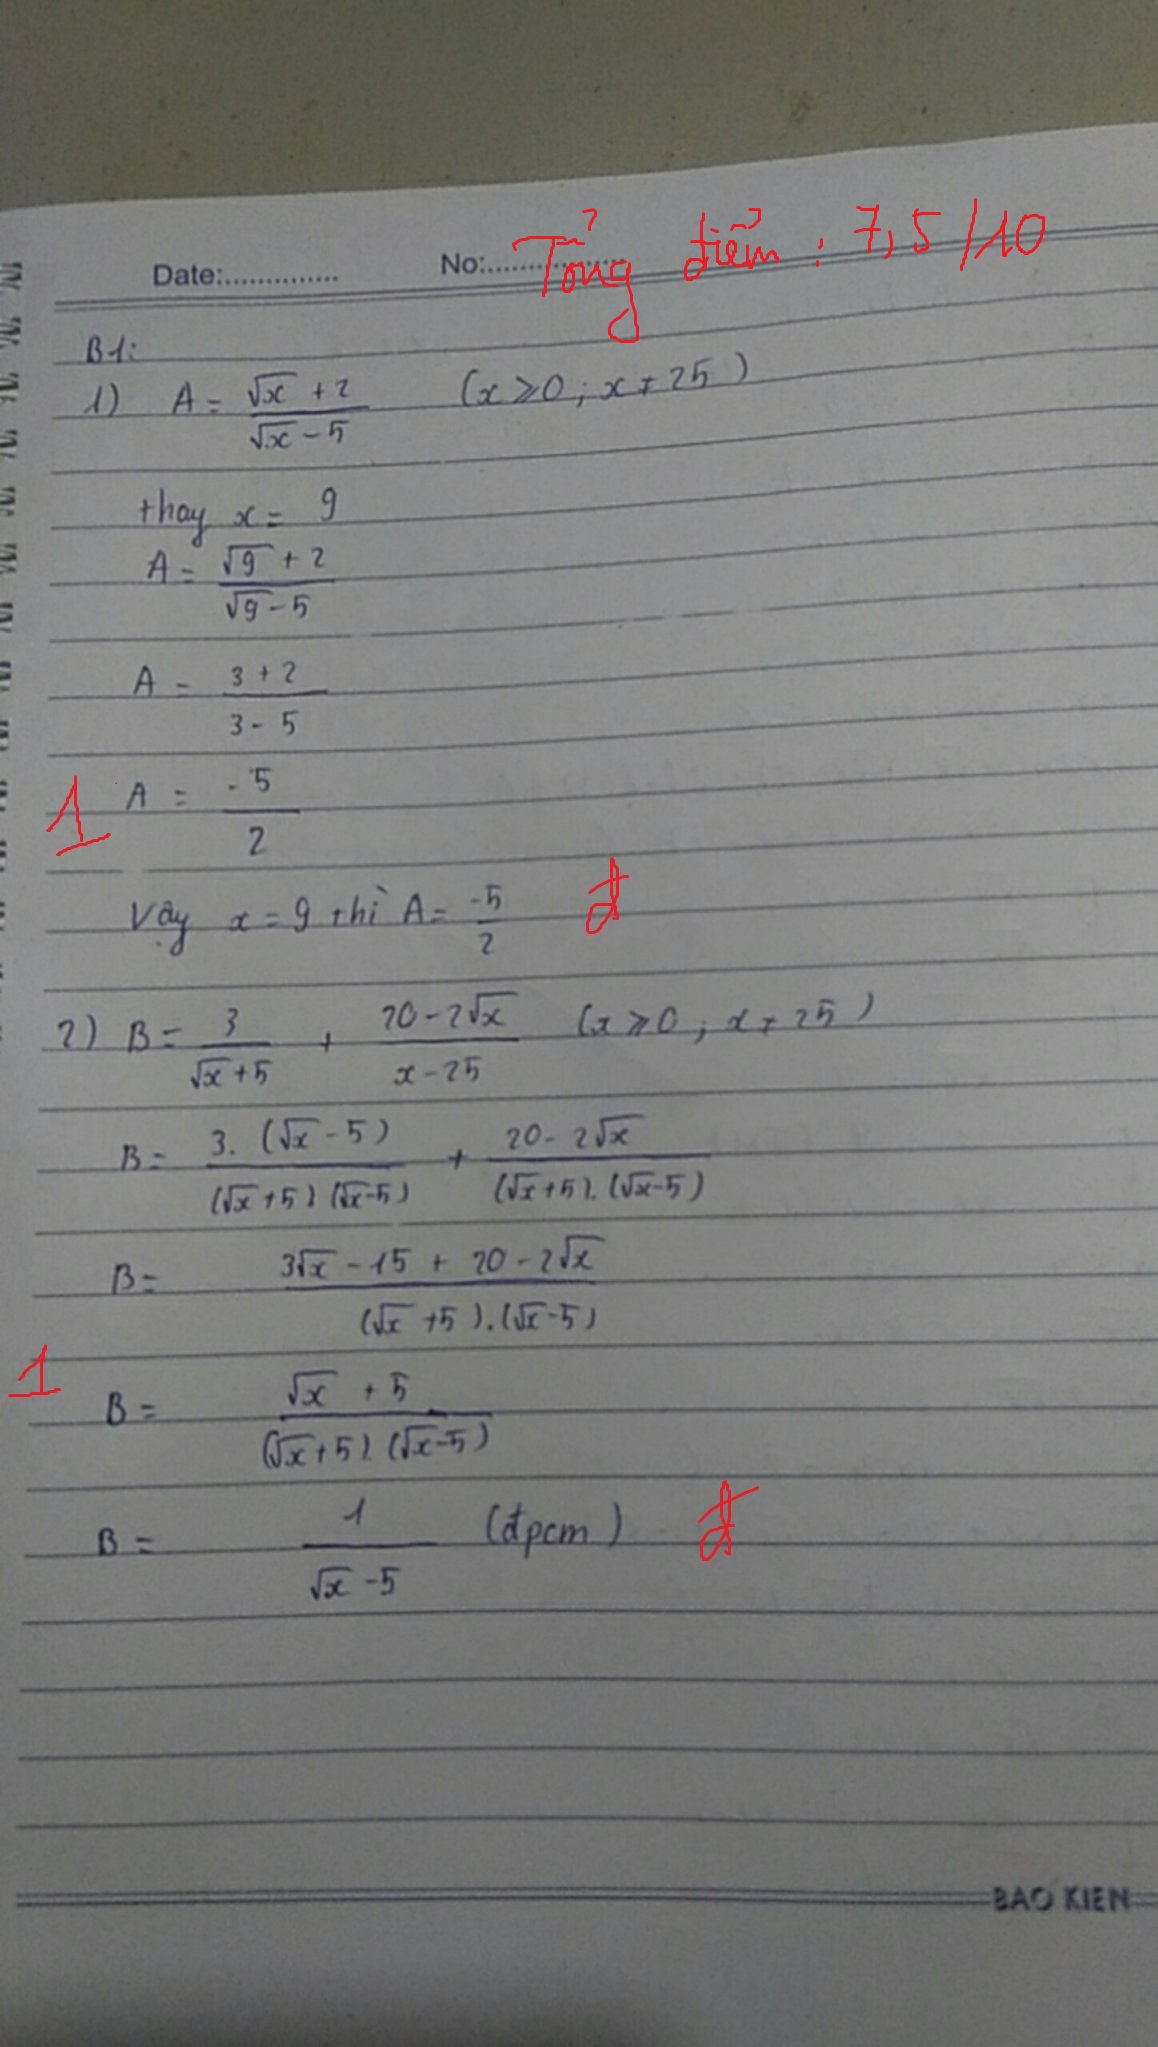 Tổng điểm : 7,5/10
Date:.............. No:................
B1:
1) A = (√x + 2)/(√x - 5) (x ≥ 0 ; x ≠ 25)
thay x = 9
A = (√9 + 2)/(√9 - 5)
A = (3 + 2)/(3 - 5)
1 A = -5/2
Vậy x = 9 thì A = -5/2 đ
2) B = 3/(√x + 5) + (20 - 2√x)/(x - 25) (x ≥ 0 ; x ≠ 25)
B = 3. (√x - 5)/(√x + 5) (√x - 5) + (20 - 2√x)/(√x + 5). (√x - 5)
B = (3√x - 15 + 20 - 2√x)/(√x + 5).(√x - 5)
1 B = (√x + 5)/(√x + 5). (√x - 5)
B = 1/(√x - 5) (đpcm) đ
BAO KIEN